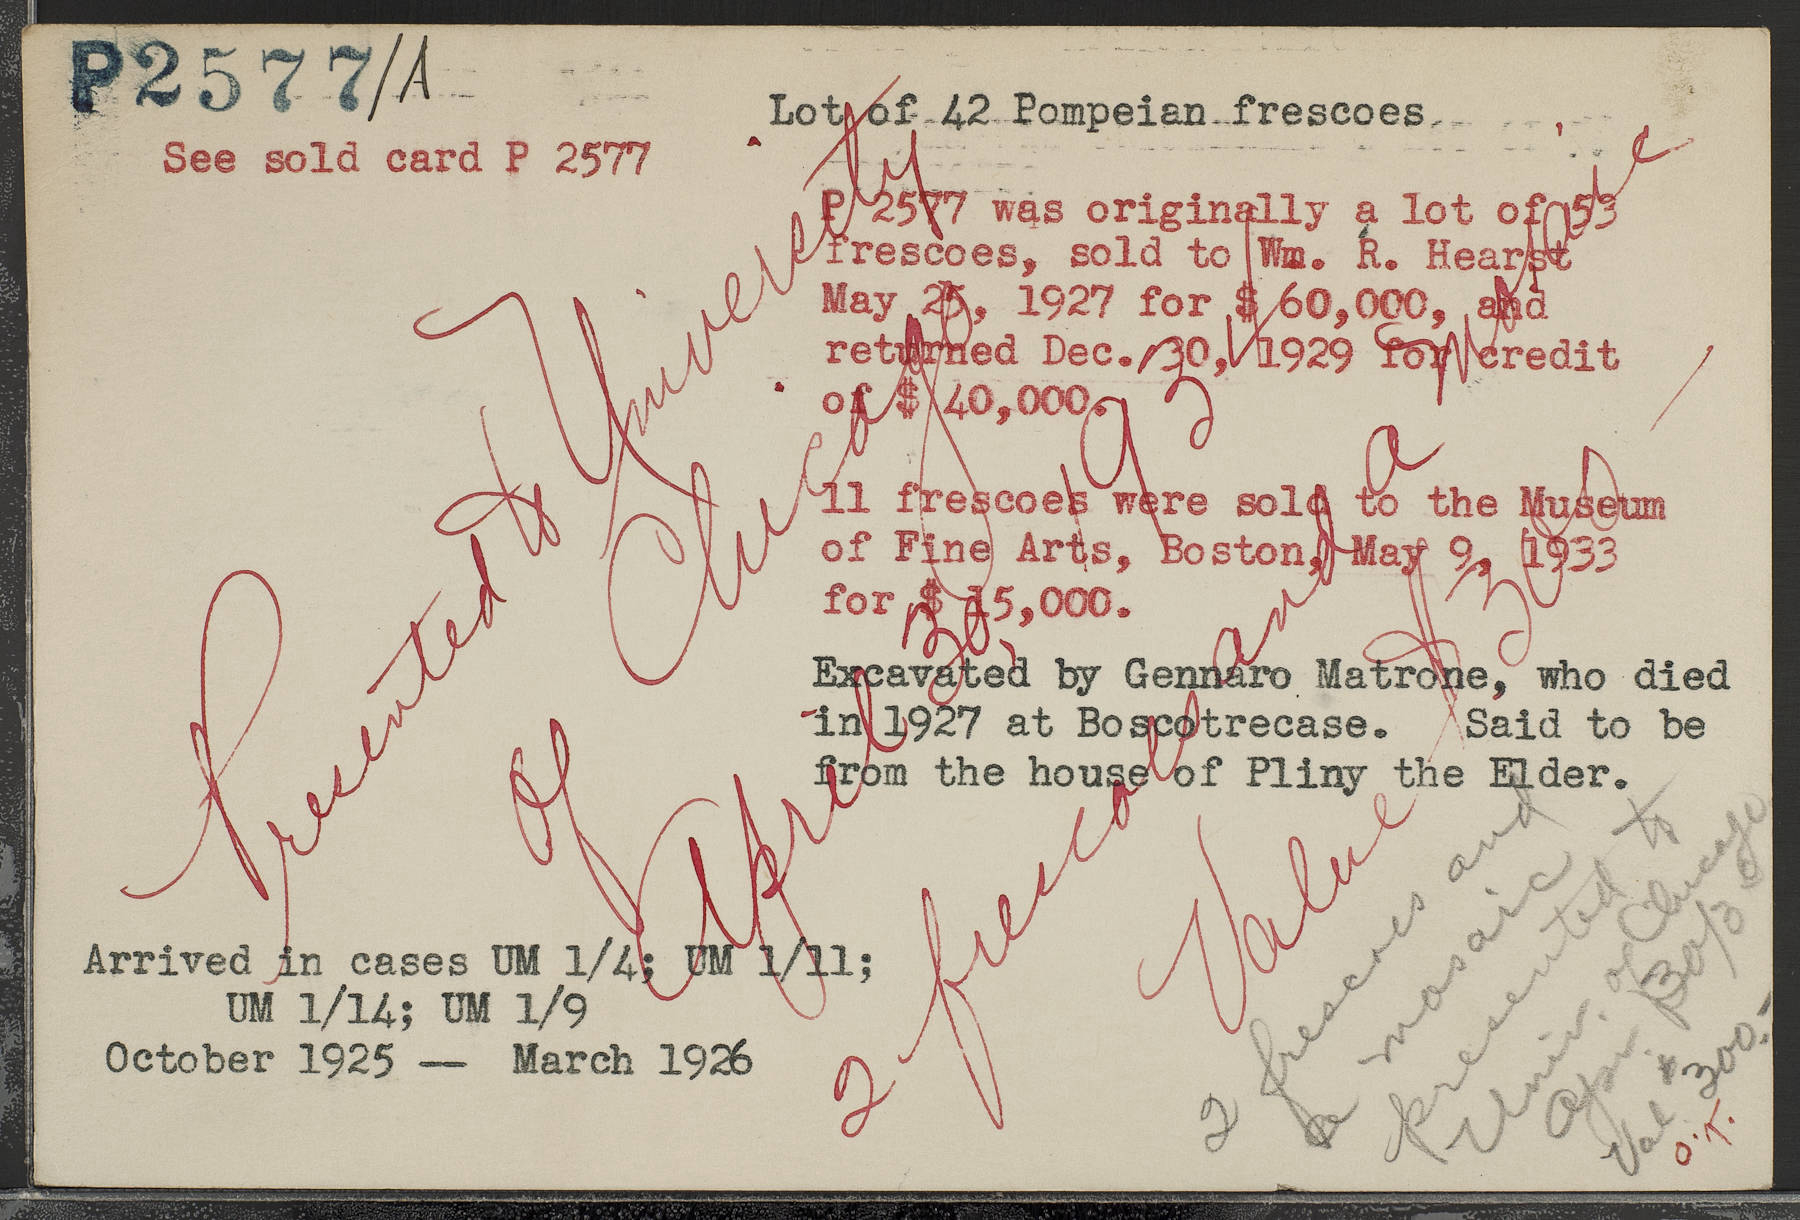 P2577/A
See sold card P 2577
Lot of 42 Pompeian frescoes
P 2577 was originally a lot of 53
frescoes, sold to Wm. R. Hearst
May 25, 1927 for $ 60,000, and
returned Dec. 30, 1929 for credit
of $ 40,000.
11 frescoes were sold to the Museum
of Fine Arts, Boston, May 9, 1933
for $ 15,000.
Excavated by Gennaro Matrone, who died
in 1927 at Boscotrecase. Said to be
from the house of Pliny the Elder.
Arrived in cases UM 1/4; UM 1/11;
UM 1/14; UM 1/9
October 1925 — March 1926
Presented to University
of Chicago
April 30, 193
2 frescoes and a mosaic
Value $ 300
2 frescoes and
a mosaic
presented to
Univ. of Chicago
Apr. 30/3
Val $300.-
O.K.